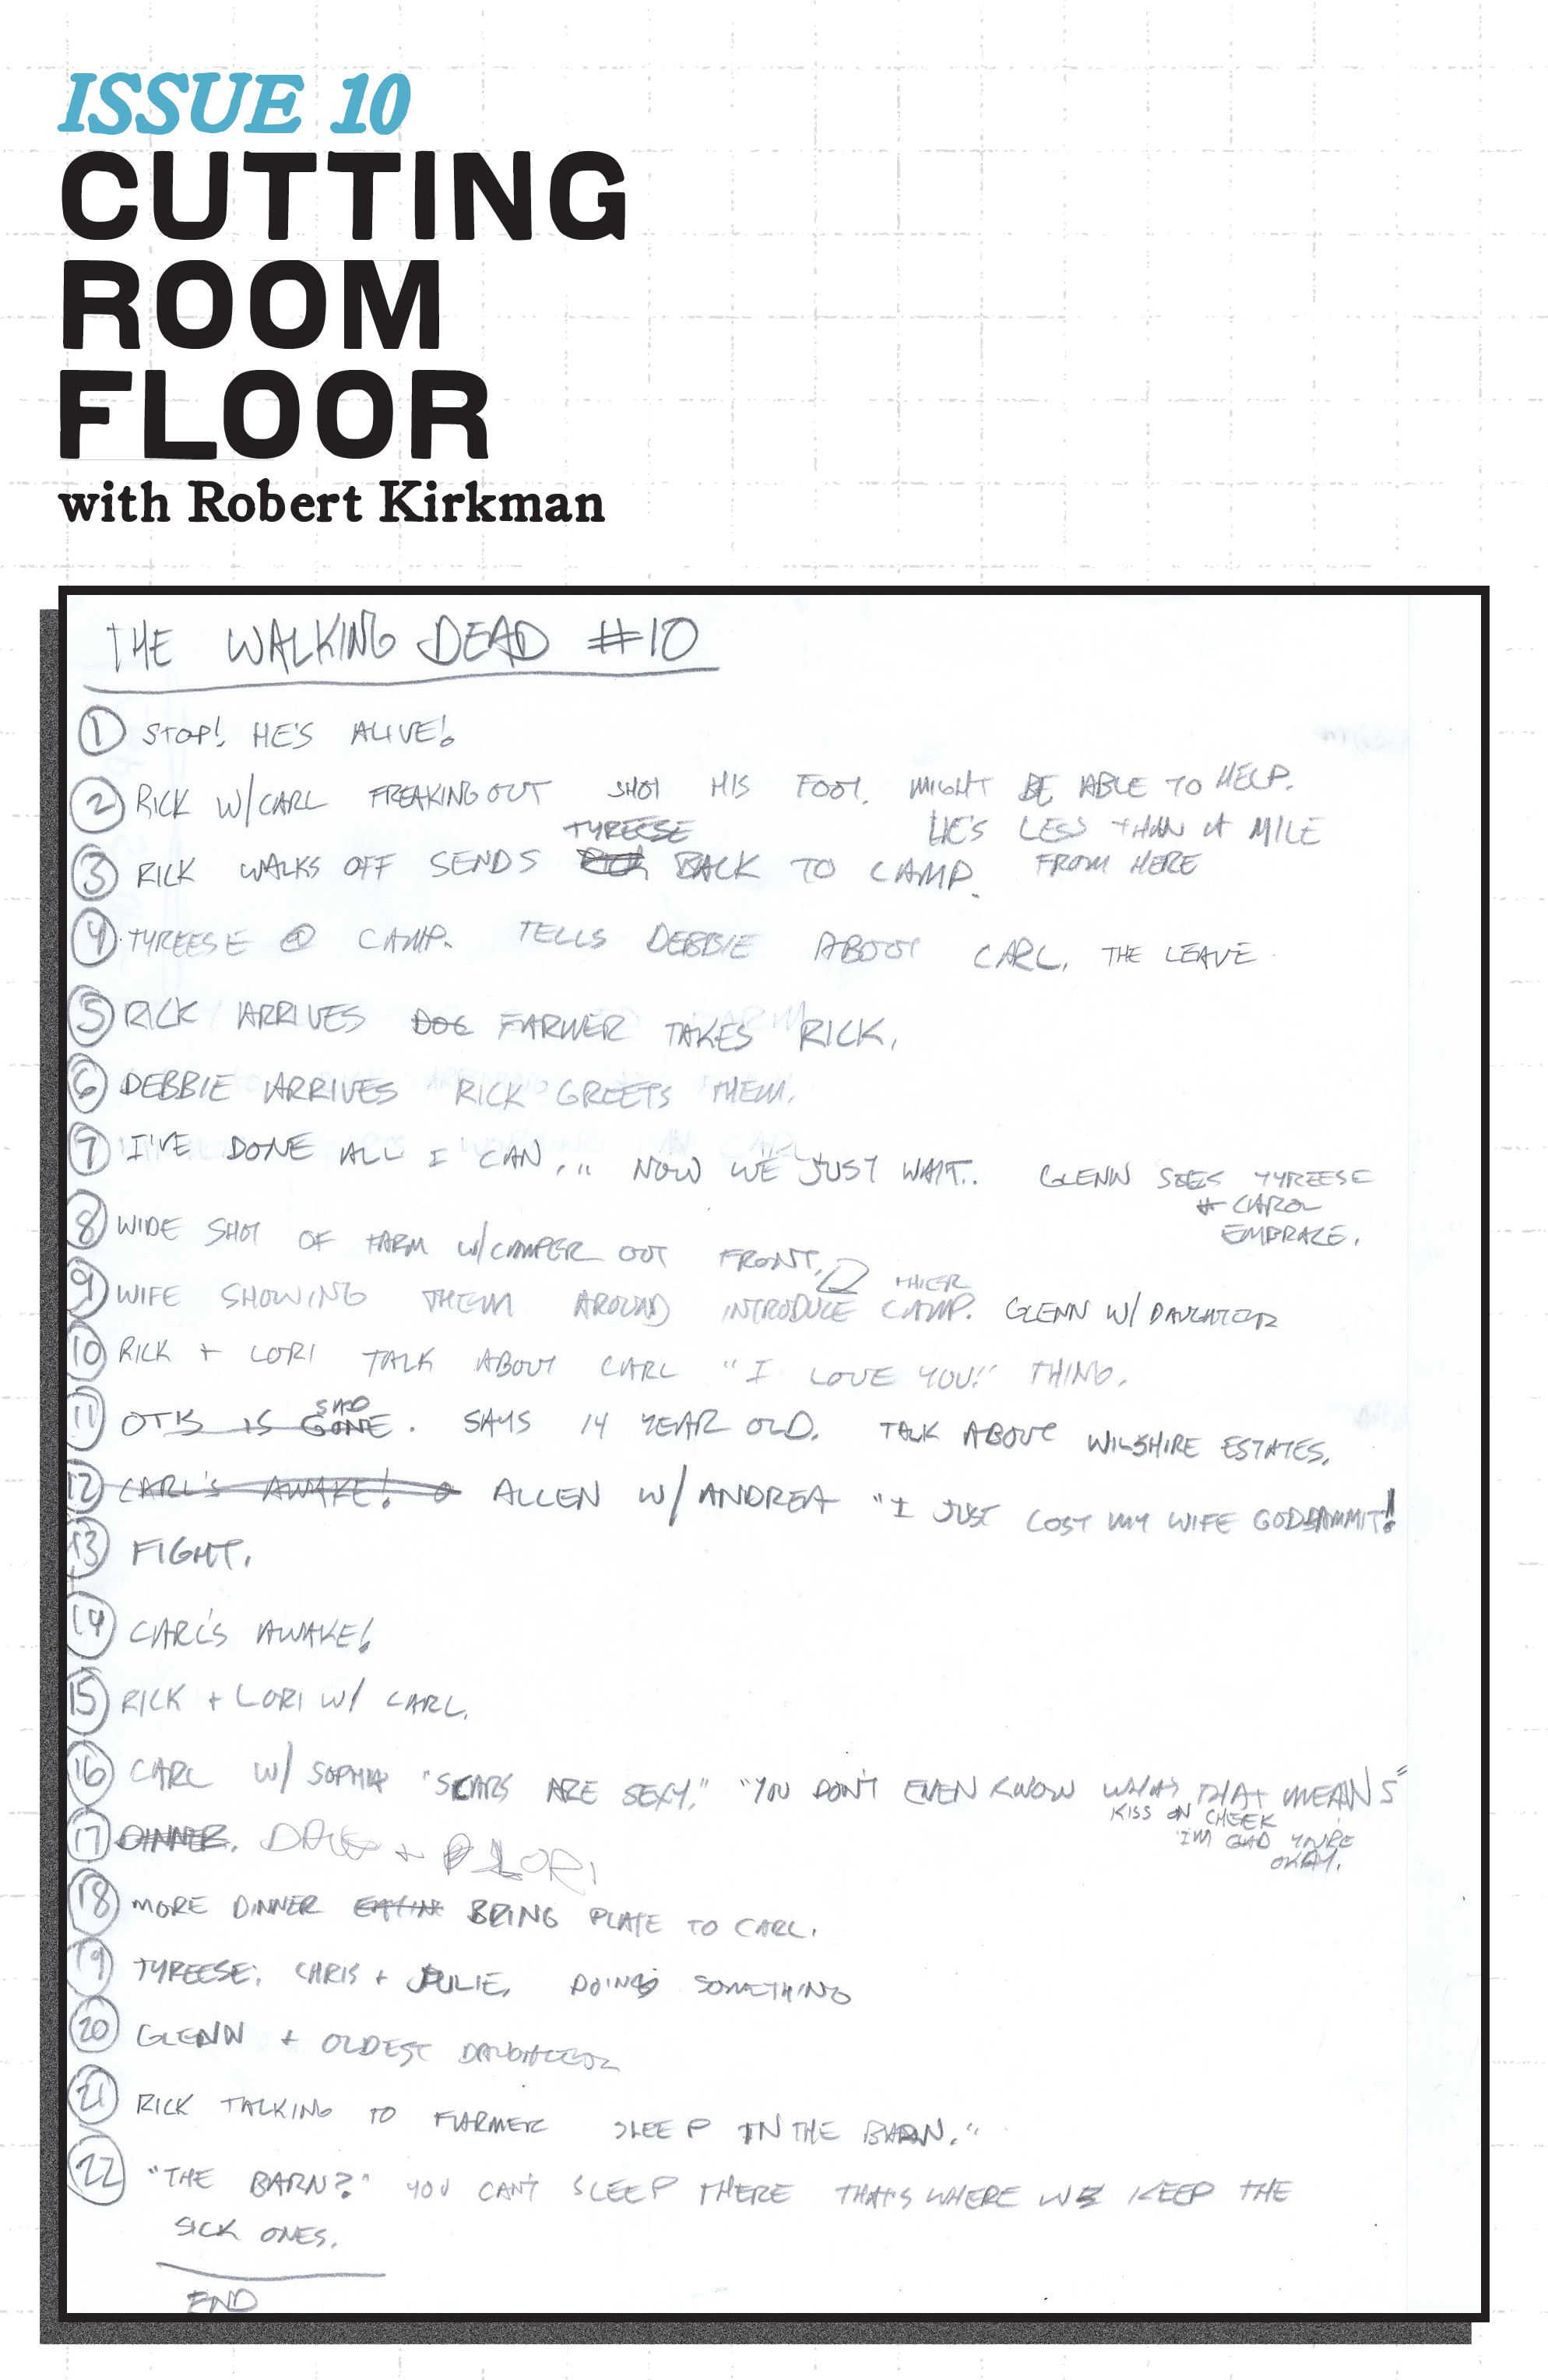 ISSUE 10
CUTTING
ROOM
FLOOR
with Robert Kirkman
THE WALKING DEAD #10
① STOP! HE'S ALIVE!
② RICK W/CARL FREAKING OUT SHOT HIS FOOT. MIGHT BE ABLE TO HELP.
HE'S LESS THAN A MILE
FROM HERE
③ RICK WALKS OFF SENDS TYREESE BACK TO CAMP.
④ TYREESE @ CAMP. TELLS DEBBIE ABOUT CARL, THE LEAVE
⑤ RICK ARRIVES DOC FARMER TAKES RICK.
⑥ DEBBIE ARRIVES RICK GREETS THEM.
⑦ I'VE DONE ALL I CAN... NOW WE JUST WAIT.. GLENN SEES TYREESE
+ CAROL
EMBRACE.
⑧ WIDE SHOT OF FARM W/CAMPER OUT FRONT.
⑨ WIFE SHOWING THEM AROUND INTRODUCE THIER CAMP. GLENN W/ DAUGHTER
⑩ RICK + LORI TALK ABOUT CARL "I LOVE YOU!" THING.
⑪ OTIS IS GONE SAD. SAYS 14 YEAR OLD. TALK ABOUT WILSHIRE ESTATES.
⑫ CARL'S AWAKE! ALLEN W/ ANDREA "I JUST LOST MY WIFE GODDAMMIT!
⑬ FIGHT.
⑭ CARL'S AWAKE!
⑮ RICK + LORI W/ CARL.
⑯ CARL W/ SOPHIA "SCARS ARE SEXY." "YOU DON'T EVEN KNOW WHAT THAT MEANS"
KISS ON CHEEK
"I'M GLAD YOU'RE
OKAY.
⑰ DINNER. DALE + LORI
⑱ MORE DINNER EATING BRING PLATE TO CARL.
⑲ TYREESE, CHRIS + JULIE, DOING SOMETHING
⑳ GLENN + OLDEST DAUGHTER
㉑ RICK TALKING TO FARMER SLEEP IN THE BARN."
㉒ "THE BARN?" YOU CAN'T SLEEP THERE THAT'S WHERE WE KEEP THE
SICK ONES.
END